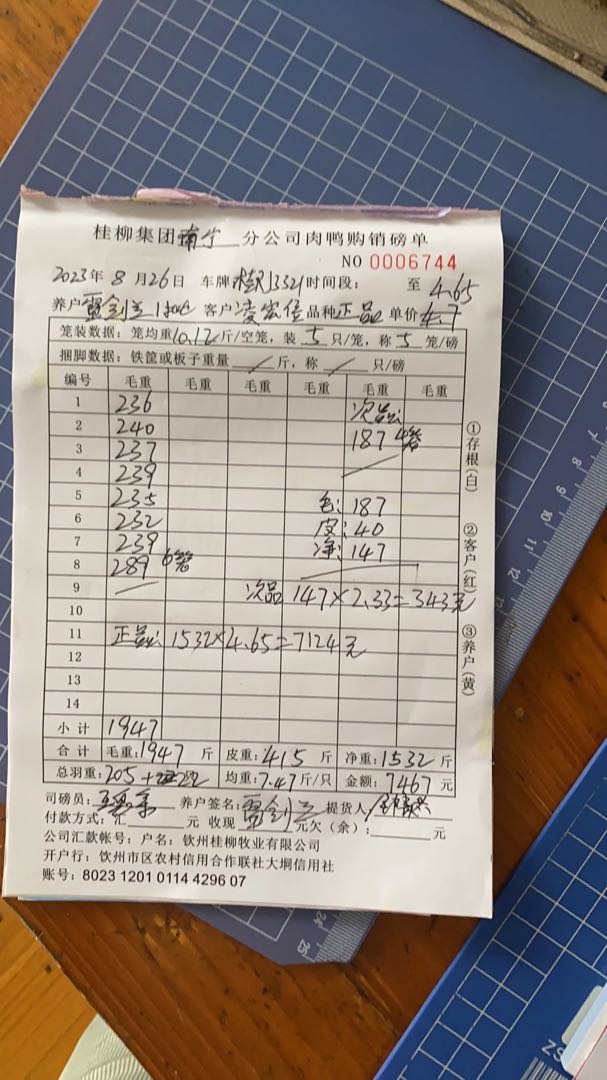 桂柳集团南宁分公司肉鸭购销磅单
NO 0006744
2023年 8 月 26 日 车牌 3321 时间段: 至 4.65
养户 雷剑兰 客户 凌宏信 品种 正品 单价 4.7
笼装数据: 笼均重 10.12 斤/空笼, 装 5 只/笼, 称 5 笼/磅
捆脚数据: 铁筐或板子重量 / 斤, 称 / 只/磅
编号 毛重 毛重 毛重 毛重 毛重 毛重
1 236 次品:
2 240 187 4笼
3 237
4 239
5 235 毛: 187
6 232 皮: 40
7 239 净: 147
8 289 6笼
9 次品 147×2.33=343元
10
11 正品: 1532×4.65=7124元
12
13
14
小计 1947
合计 毛重: 1947 斤 皮重: 415 斤 净重: 1532 斤
总羽重: 205+ 均重: 7.47 斤/只 金额: 7467 元
司磅员: 养户签名: 雷剑兰 提货人
付款方式: 汇 元 收现 元欠(余): 元
公司汇款帐号: 户名: 钦州桂柳牧业有限公司
开户行: 钦州市区农村信用合作联社大垌信用社
账号: 8023 1201 0114 4296 07
①存根(白)
②客户(红)
③养户(黄)